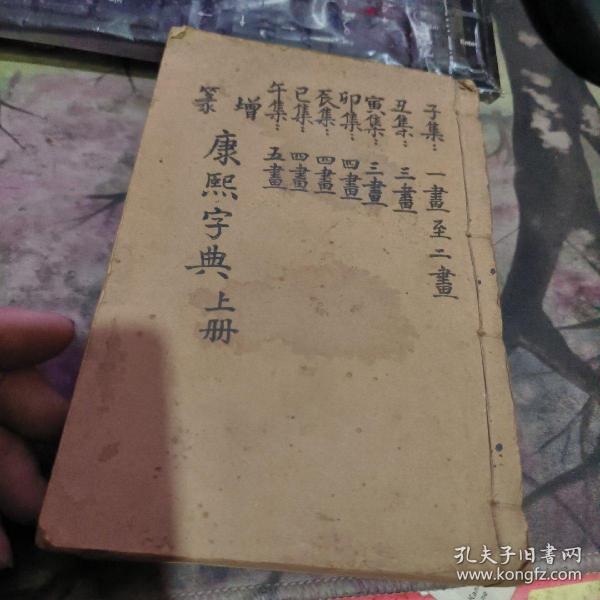 子集：一畫至二畫
丑集：三畫
寅集：三畫
卯集：四畫
辰集：四畫
巳集：四畫
午集：五畫
增篆
康熙字典上册
孔夫子旧书网
www.kongfz.com